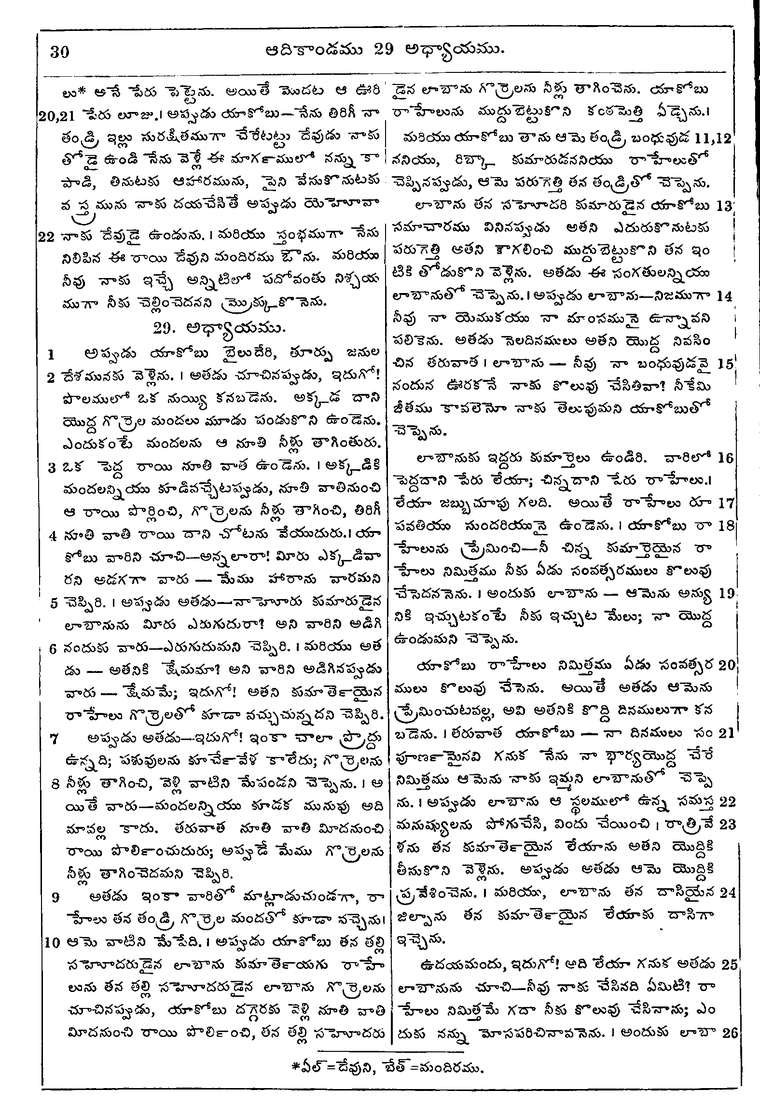 30
ఆదికాండము 29 అధ్యాయము.
లు* అనే పేరు పెట్టెను. అయితే మొదట ఆ ఊరి
20,21 పేరు లూజు. । అప్పుడు యాకోబు—నేను తిరిగీ నా
తండ్రి ఇల్లు సురక్షితముగా చేరేటట్టు దేవుడు నాకు
తోడై ఉండి నేను వెళ్లే ఈ మార్గములో నన్ను కా
పాడి, తినుటకు ఆహారమును, పైని వేసుకొనుటకు
వస్త్రమును నాకు దయచేసితే అప్పుడు యెహోవా
22 నాకు దేవుడై ఉండును. । మరియు స్తంభముగా నేను
నిలిపిన ఈ రాయి దేవుని మందిరము ఔను. మరియు
నీవు నాకు ఇచ్చే అన్నిటిలో పదోవంతు నిశ్చయ
ముగా నీకు చెల్లించెదనని మ్రొక్కుకొనెను.
29. అధ్యాయము.
1 అప్పుడు యాకోబు బైలుదేరి, తూర్పు జనుల
2 దేశమునకు వెళ్లెను. । అతడు చూచినప్పుడు, ఇదుగో!
పొలములో ఒక నుయ్యి కనబడెను. అక్కడ దాని
యొద్ద గొర్రెల మందలు మూడు పండుకొని ఉండెను.
ఎందుకంటే మందలను ఆ నూతి నీళ్లు తాగింతురు.
3 ఒక పెద్ద రాయి నూతి వాత ఉండెను. । అక్కడికి
మందలన్నియు కూడివచ్చేటప్పుడు, నూతి వాతినుంచి
ఆ రాయి పొర్లించి, గొర్రెలను నీళ్లు తాగించి, తిరిగీ
4 నూతి వాతి రాయి దాని చోటను వేయుదురు. । యా
కోబు వారిని చూచి—అన్నలారా! మీరు ఎక్కడివా
రని అడగగా వారు — మేము హారాను వారమని
5 చెప్పిరి. । అప్పుడు అతడు—నాహోరు కుమారుడైన
లాబానును మీరు ఎరుగుదురా? అని వారిని అడిగి
6 నందుకు వారు—ఎరుగుదుమని చెప్పిరి. । మరియు అత
డు — అతనికి క్షేమమా? అని వారిని అడిగినప్పుడు
వారు — క్షేమమే; ఇదుగో! అతని కుమార్తెయైన
రాహేలు గొర్రెలతో కూడా వచ్చుచున్నదని చెప్పిరి.
7 అప్పుడు అతడు—ఇదుగో! ఇంకా చాలా ప్రొద్దు
ఉన్నది; పశువులను కూర్చేవేళ కాలేదు; గొర్రెలను
8 నీళ్లు తాగించి, వెళ్లి వాటిని మేపండని చెప్పెను. । అ
యితే వారు—మందలన్నియు కూడక మునుపు అది
మావల్ల కాదు. తరువాత నూతి వాతి మీదనుంచి
రాయి పొర్లించుదురు; అప్పుడే మేము గొర్రెలను
నీళ్లు తాగించెదమని చెప్పిరి.
9 అతడు ఇంకా వారితో మాట్లాడుచుండగా, రా
హేలు తన తండ్రి గొర్రెల మందతో కూడా వచ్చెను.।
10 ఆమె వాటిని మేపేది. । అప్పుడు యాకోబు తన తల్లి
సహోదరుడైన లాబాను కుమార్తెయగు రాహే
లును తన తల్లి సహోదరుడైన లాబాను గొర్రెలను
చూచినప్పుడు, యాకోబు దగ్గరకు వెళ్లి నూతి వాతి
మీదనుంచి రాయి పొర్లించి, తన తల్లి సహోదరు
డైన లాబాను గొర్రెలను నీళ్లు తాగించెను. యాకోబు
రాహేలును ముద్దుబెట్టుకొని కంఠమెత్తి ఏడ్చెను.।
మరియు యాకోబు తాను ఆమె తండ్రి బంధువుడ 11,12
ననియు, రిబ్కా కుమారుడననియు రాహేలుతో
చెప్పినప్పుడు, ఆమె పరుగెత్తి తన తండ్రితో చెప్పెను.
లాబాను తన సహోదరి కుమారుడైన యాకోబు 13
సమాచారము వినినప్పుడు అతని ఎదురుకొనుటకు
పరుగెత్తి అతని కాగలించి ముద్దుబెట్టుకొని తన ఇం
టికి తోడుకొని వెళ్లెను. అతడు ఈ సంగతులన్నియు
లాబానుతో చెప్పెను. । అప్పుడు లాబాను—నిజముగా 14
నీవు నా యెముకయు నా మాంసమునై ఉన్నావని
పలికెను. అతడు నెలదినములు అతని యొద్ద నివసిం
చిన తరువాత । లాబాను — నీవు నా బంధువుడవై 15
నందున ఊరకనే నాకు కొలువు చేసితివా? నీకేమి
జీతము కావలెనో నాకు తెలుపుమని యాకోబుతో
చెప్పెను.
లాబానుకు ఇద్దరు కుమార్తెలు ఉండిరి. వారిలో 16
పెద్దదాని పేరు లేయా; చిన్నదాని పేరు రాహేలు.।
లేయా జబ్బుచూపు గలది. అయితే రాహేలు రూ 17
పవతియు సుందరియునై ఉండెను. । యాకోబు రా 18
హేలును ప్రేమించి—నీ చిన్న కుమార్తెయైన రా
హేలు నిమిత్తము నీకు ఏడు సంవత్సరములు కొలువు
చేసెదననెను. । అందుకు లాబాను — ఆమెను అన్యు 19
నికి ఇచ్చుటకంటే నీకు ఇచ్చుట మేలు; నా యొద్ద
ఉండుమని చెప్పెను.
యాకోబు రాహేలు నిమిత్తము ఏడు సంవత్సర 20
ములు కొలువు చేసెను. అయితే అతడు ఆమెను
ప్రేమించుటవల్ల, అవి అతనికి కొద్ది దినములుగా కన
బడెను. । తరువాత యాకోబు — నా దినములు సం 21
పూర్ణమైనవి గనుక నేను నా భార్యయొద్ద చేరే
నిమిత్తము ఆమెను నాకు ఇమ్మని లాబానుతో చెప్పె
ను. । అప్పుడు లాబాను ఆ స్థలములో ఉన్న సమస్త 22
మనుష్యులను పోగుచేసి, విందు చేయించి । రాత్రివే 23
ళను తన కుమార్తెయైన లేయాను అతని యొద్దికి
తీసుకొని వెళ్లెను. అప్పుడు అతడు ఆమె యొద్దికి
ప్రవేశించెను. । మరియు, లాబాను తన దాసియైన 24
జిల్పాను తన కుమార్తెయైన లేయాకు దాసిగా
ఇచ్చెను.
ఉదయమందు, ఇదుగో! అది లేయా గనుక అతడు 25
లాబానును చూచి—నీవు నాకు చేసినది ఏమిటి? రా
హేలు నిమిత్తమే గదా నీకు కొలువు చేసినాను; ఎం
దుకు నన్ను మోసపరిచినావనెను. । అందుకు లాబా 26
*ఏల్=దేవుని, బేత్=మందిరము.